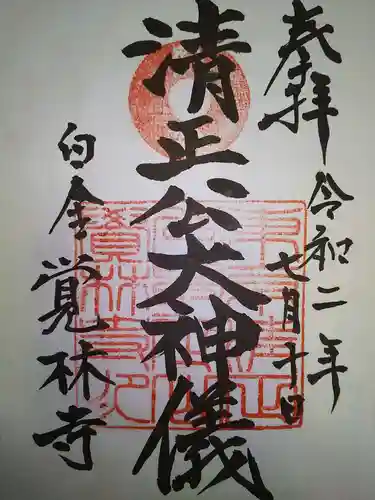 奉拝
令和二年
七月十日
清正公大神儀
白金
覺林寺